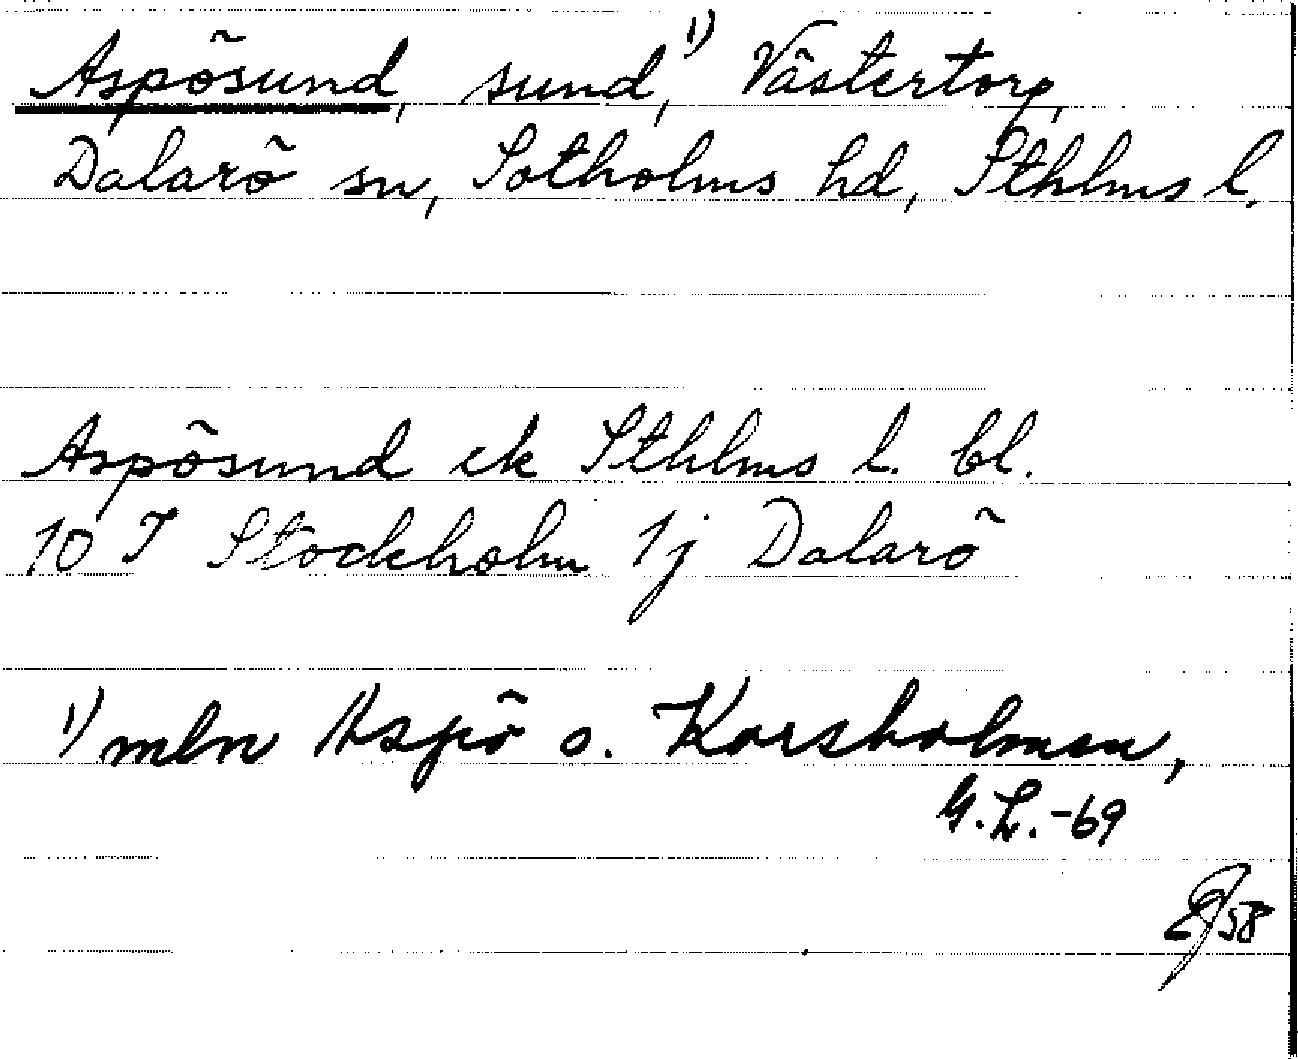 Aspösund, sund,¹⁾ Västertorp,
Dalarö sn, Sotholms hd, Sthlms l.
Aspösund ek Sthlms l. bl.
10 I Stockholm 1j Dalarö
¹⁾ mln Aspö o. Korsholmen,
G.L.-69
58